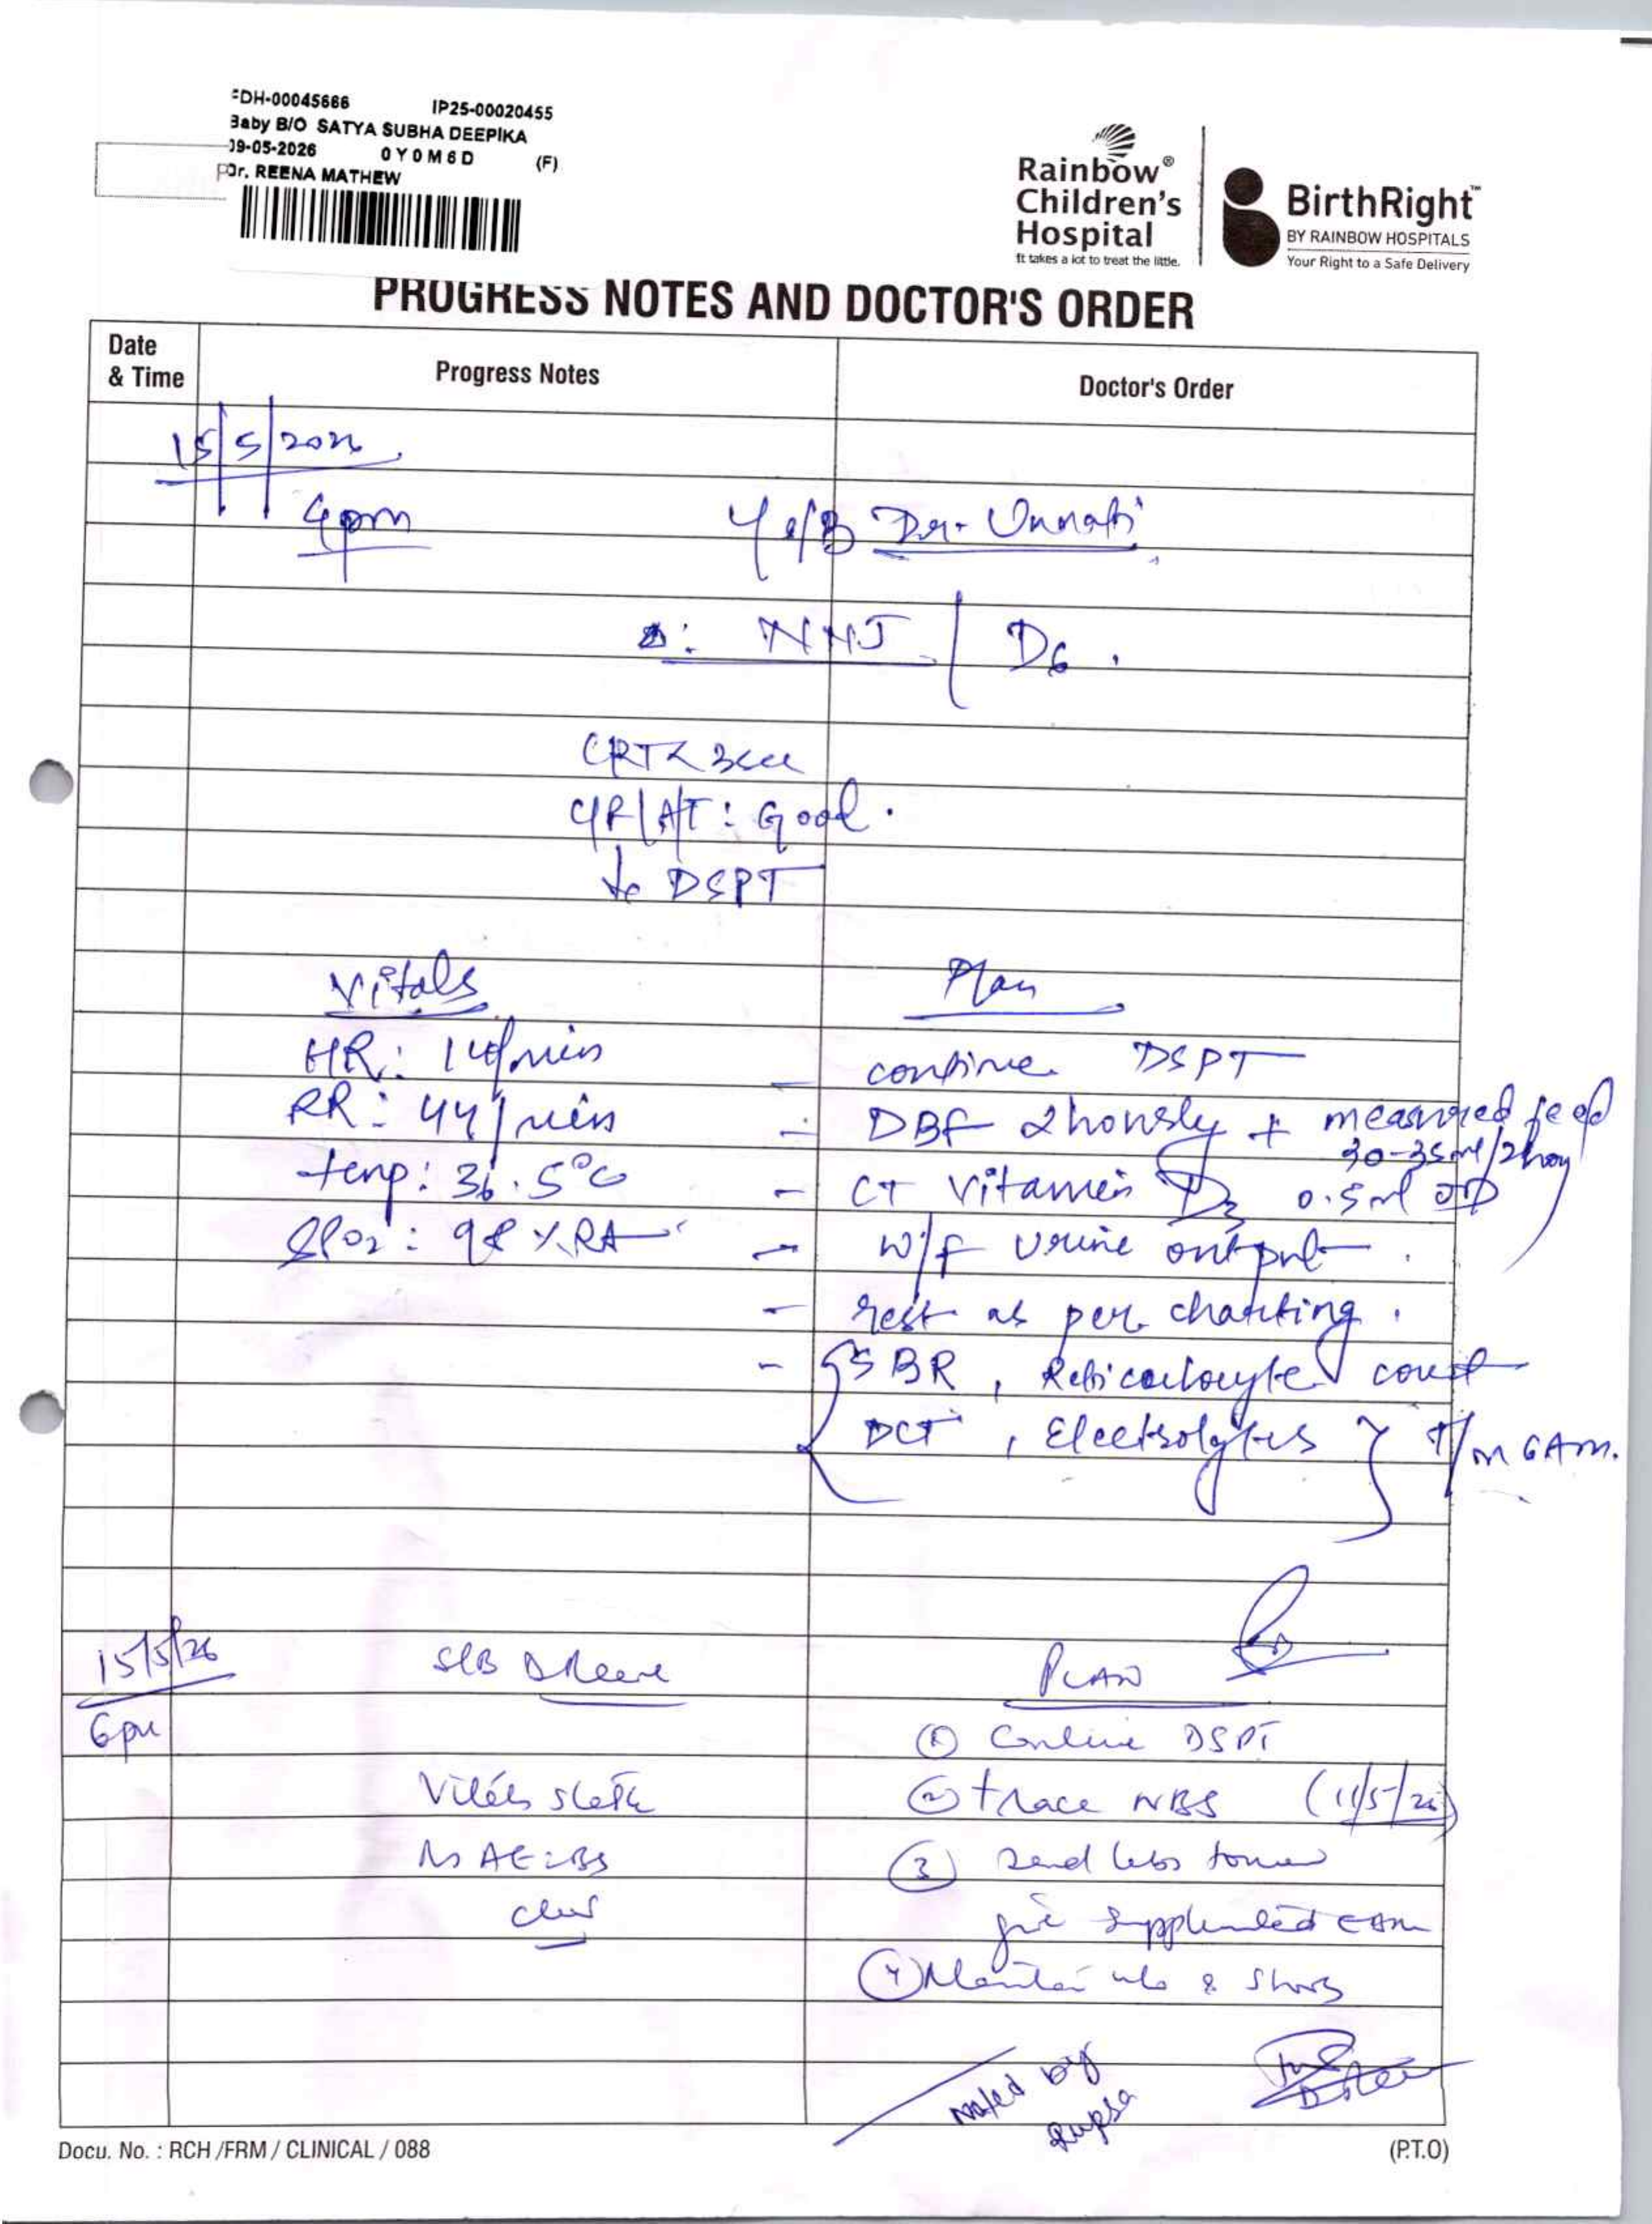 DH-00045666 IP25-00020455
Baby B/O SATYA SUBHA DEEPIKA
09-05-2026 0Y0M6D (F)
Dr. REENA MATHEW
Rainbow®
Children's
Hospital
It takes a lot to treat the little.
BirthRight™
BY RAINBOW HOSPITALS
Your Right to a Safe Delivery
PROGRESS NOTES AND DOCTOR'S ORDER
Date & Time Progress Notes Doctor's Order
15/5/2026
4pm
Dr. Unnati
Δ: NNJ / D6.
CRT < 3sec
C/R/A/T: Good.
DSPT
Vitals Plan
HR: /min
- continue DSPT
RR: 44/min
- DBF 2hourly + measured feed
30-35ml/2hrly
temp: 36.5°C
- CT Vitamin D3 0.5ml OD
SPO2: 98% RA
- W/F Urine output.
- rest as per charting.
- {SBR, Reticulocyte count
DCT, Electrolytes} T/m 6Am.
15/5/26 S/B Dr Reena PLAN
6pm
① Continue DSPT
Vitals stable
② trace NBS (11/5/26)
AE=BS
③ Send labs tomorrow
clear
give supplemented EBM
④ Monitor & 
noted by
Rupsa
Docu. No. : RCH /FRM / CLINICAL / 088 (P.T.O)